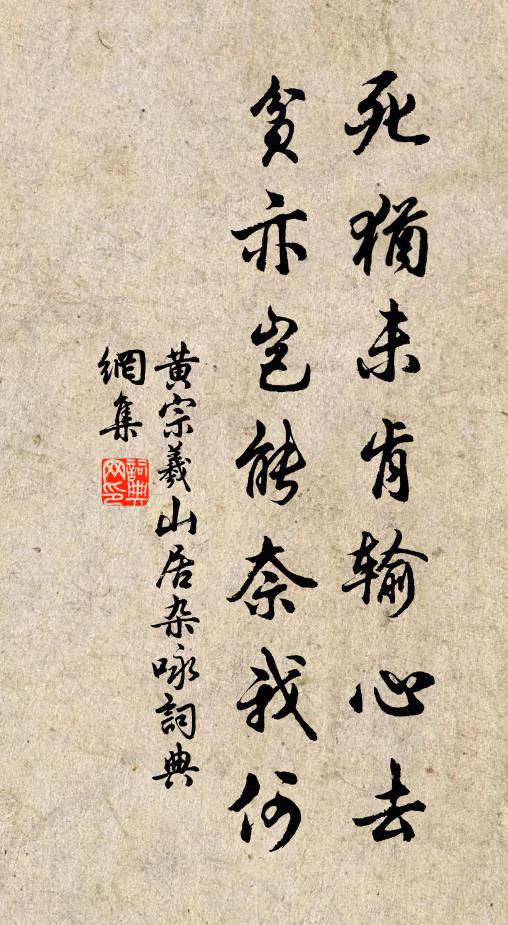 死猶未肯輸心去
貧亦岂能奈我何
黄宗羲山居杂咏詞典
網集
詞典
网印